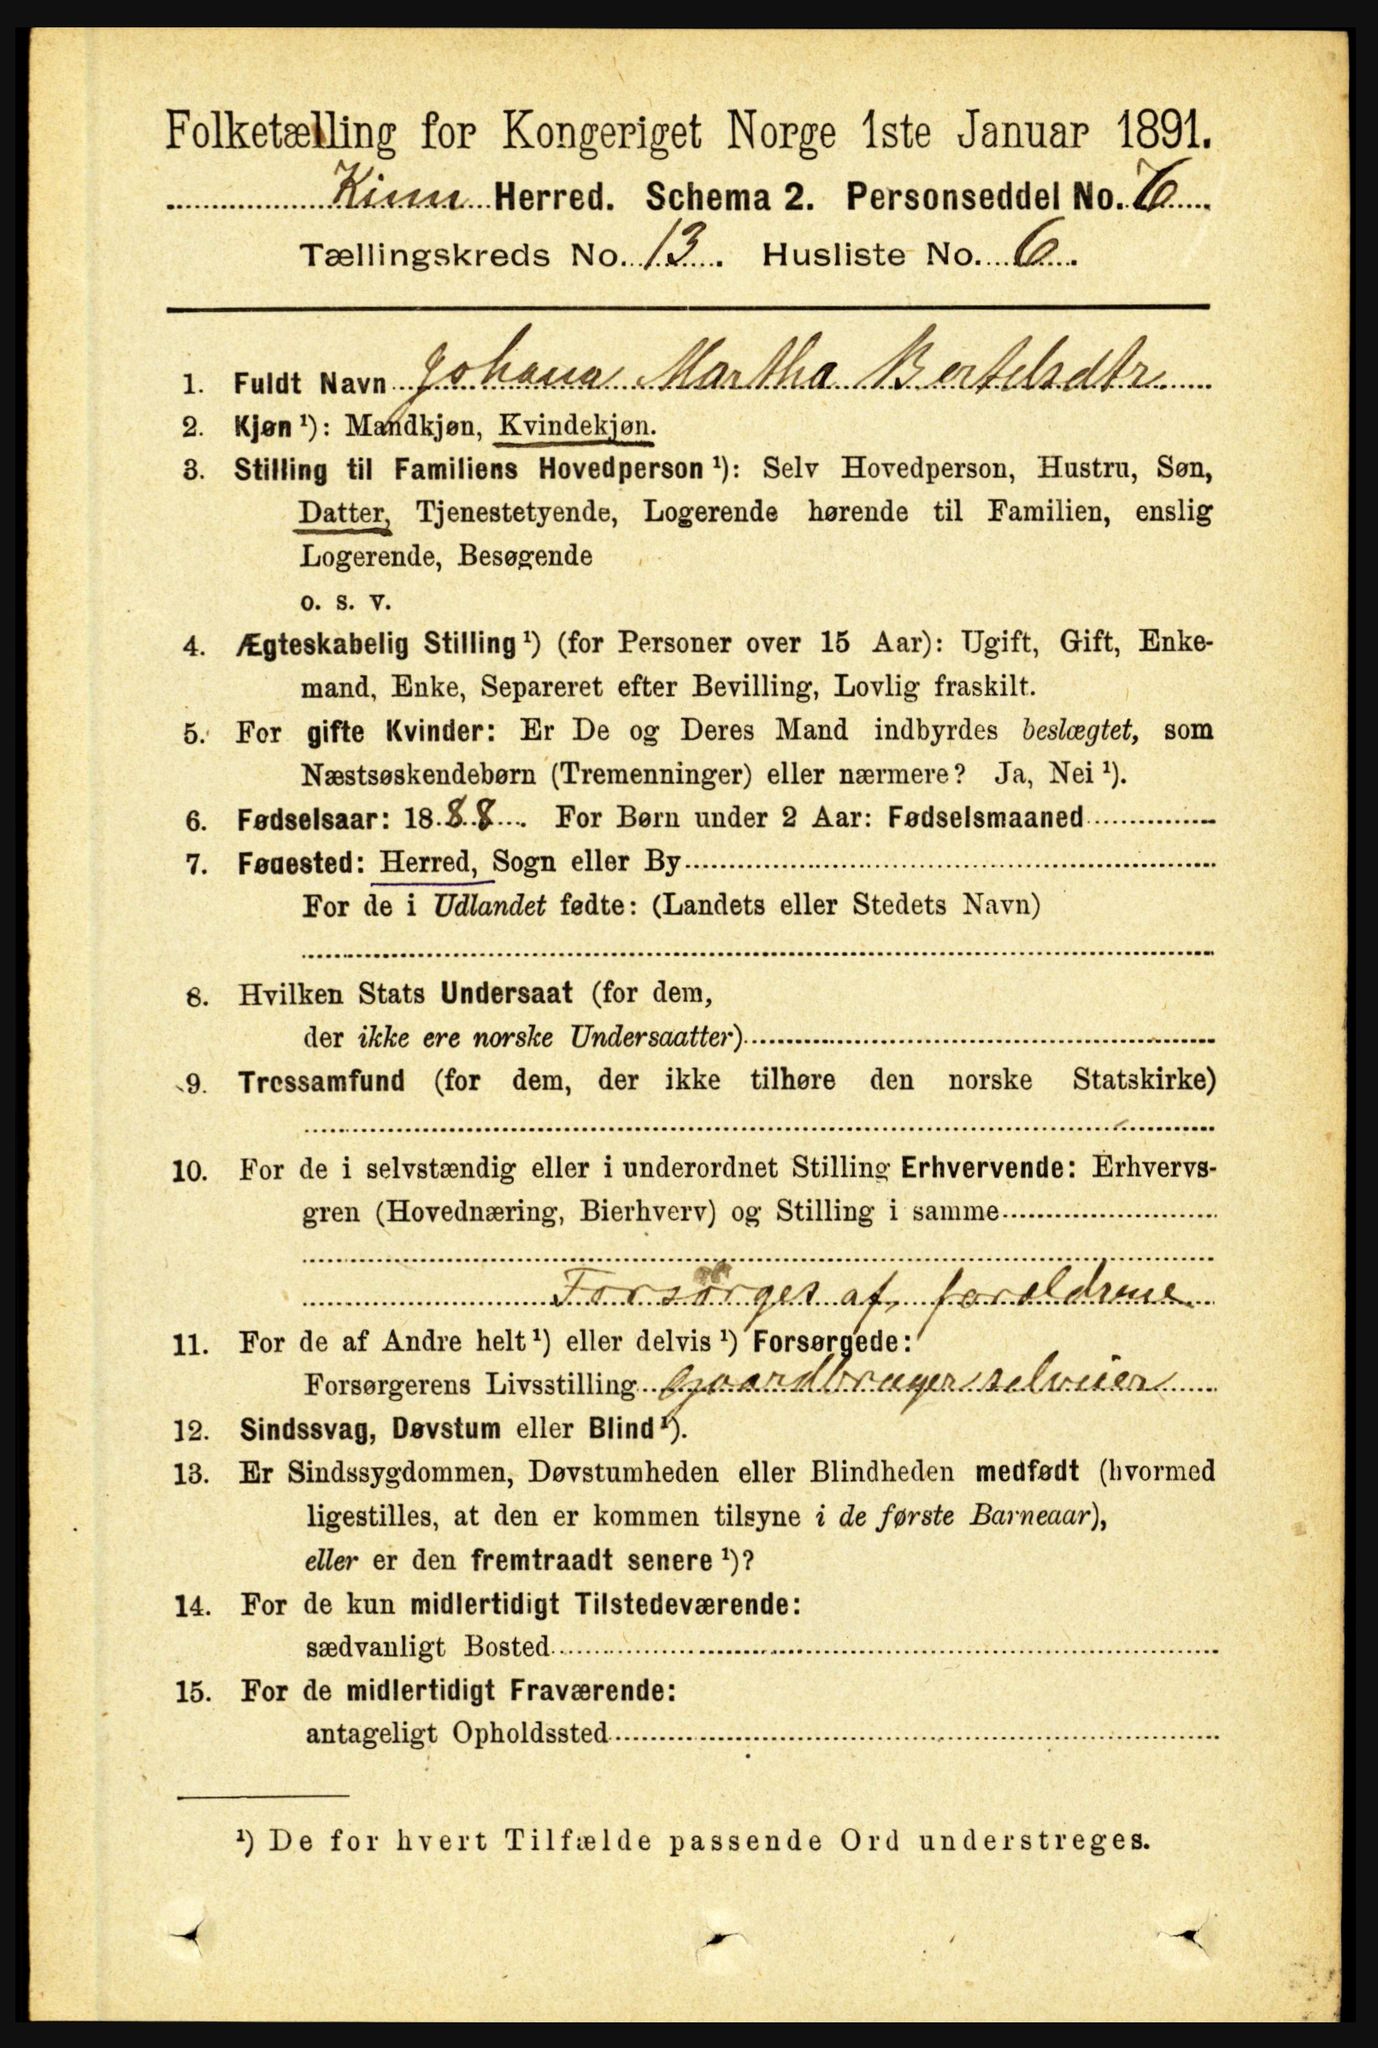 Folketælling for Kongeriget Norge 1ste Januar 1891.
Kinn Herred. Schema 2. Personseddel No. 6
Tællingskreds No. 13. Husliste No. 6.
1. Fuldt Navn Johana Martha Bertelsdtr
2. Kjøn¹): Mandkjøn, Kvindekjøn.
3. Stilling til Familiens Hovedperson¹): Selv Hovedperson, Hustru, Søn,
Datter, Tjenestetyende, Logerende hørende til Familien, enslig
Logerende, Besøgende
o. s. v.
4. Ægteskabelig Stilling¹) (for Personer over 15 Aar): Ugift, Gift, Enke-
mand, Enke, Separeret efter Bevilling, Lovlig fraskilt.
5. For gifte Kvinder: Er De og Deres Mand indbyrdes beslægtet, som
Næstsøskendebørn (Tremenninger) eller nærmere? Ja, Nei¹).
6. Fødselsaar: 1888. For Børn under 2 Aar: Fødselsmaaned
7. Fødested: Herred, Sogn eller By
For de i Udlandet fødte: (Landets eller Stedets Navn)
8. Hvilken Stats Undersaat (for dem,
der ikke ere norske Undersaatter)
9. Trossamfund (for dem, der ikke tilhøre den norske Statskirke)
10. For de i selvstændig eller i underordnet Stilling Erhvervende: Erhvervs-
gren (Hovednæring, Bierhverv) og Stilling i samme
Forsørges af forældrene
11. For de af Andre helt¹) eller delvis¹) Forsørgede:
Forsørgerens Livsstilling gaardbruger selveier
12. Sindssvag, Døvstum eller Blind¹).
13. Er Sindssygdommen, Døvstumheden eller Blindheden medfødt (hvormed
ligestilles, at den er kommen tilsyne i de første Barneaar),
eller er den fremtraadt senere¹)?
14. For de kun midlertidigt Tilstedeværende:
sædvanligt Bosted
15. For de midlertidigt Fraværende:
antageligt Opholdssted
¹) De for hvert Tilfælde passende Ord understreges.